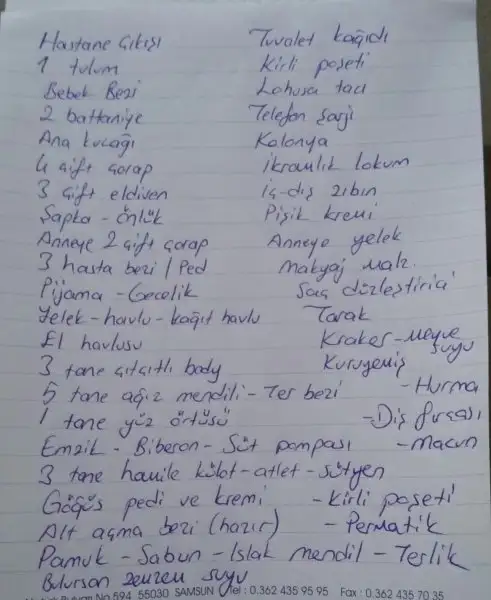 Hastane Çıkışı
1 tulum
Bebek Bezi
2 battaniye
Ana kucağı
4 çift çorap
3 çift eldiven
Şapka - önlük
Anneye 2 çift çorap
3 hasta bezi / Ped
Pijama - Gecelik
Yelek - havlu - kağıt havlu
El havlusu
3 tane çıtçıtlı body
5 tane ağız mendili - Ter bezi
1 tane yüz örtüsü
Emzik - Biberon - Süt pompası
3 tane hamile külot - atlet - sütyen
Göğüs pedi ve kremi
Alt açma bezi (hazır)
Pamuk - Sabun - Islak mendil - Terlik
Bulursan zemzem suyu
Tuvalet kağıdı
Kirli poşeti
Lohusa tacı
Telefon şarjı
Kolonya
ikramlık lokum
iç-dış zıbın
Pişik kremi
Anneye yelek
Makyaj malz.
Saç düzleştirici
Tarak
Kraker - meyve suyu
Kuruyemiş
- Hurma
- Diş fırçası
- macun
- Kirli poşeti
- Permatik
No 594 55030 SAMSUN Tel : 0.362 435 95 95 Fax : 0.362 435 70 35